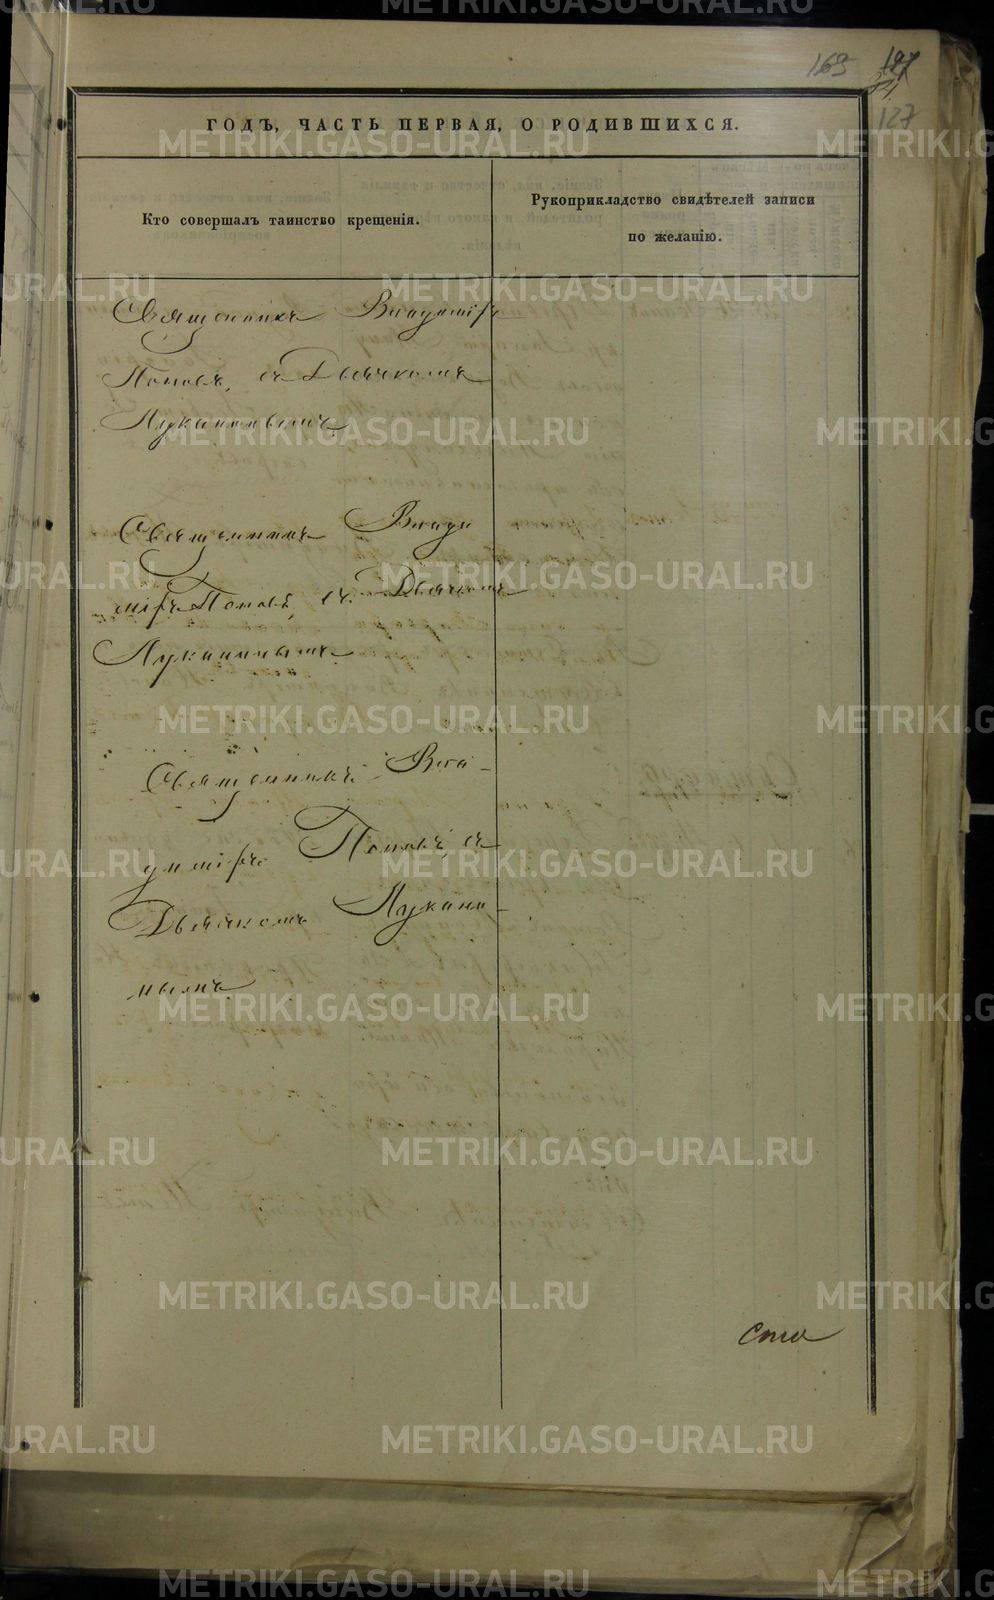 169 127
127
ГОДЪ, ЧАСТЬ ПЕРВАЯ, О РОДИВШИХСЯ.
Кто совершалъ таинство крещенія.
Рукоприкладство свидѣтелей записи
по желанію.
Священникъ Владиміръ
Поповъ, съ Дьячкомъ
Луканинымъ
Священникъ Влади
міръ Поповъ, съ Дьячкомъ
Луканинымъ
Священникъ Вла-
диміръ Поповъ, съ
Дьячкомъ Лукани-
нымъ
METRIKI.GASO-URAL.RU